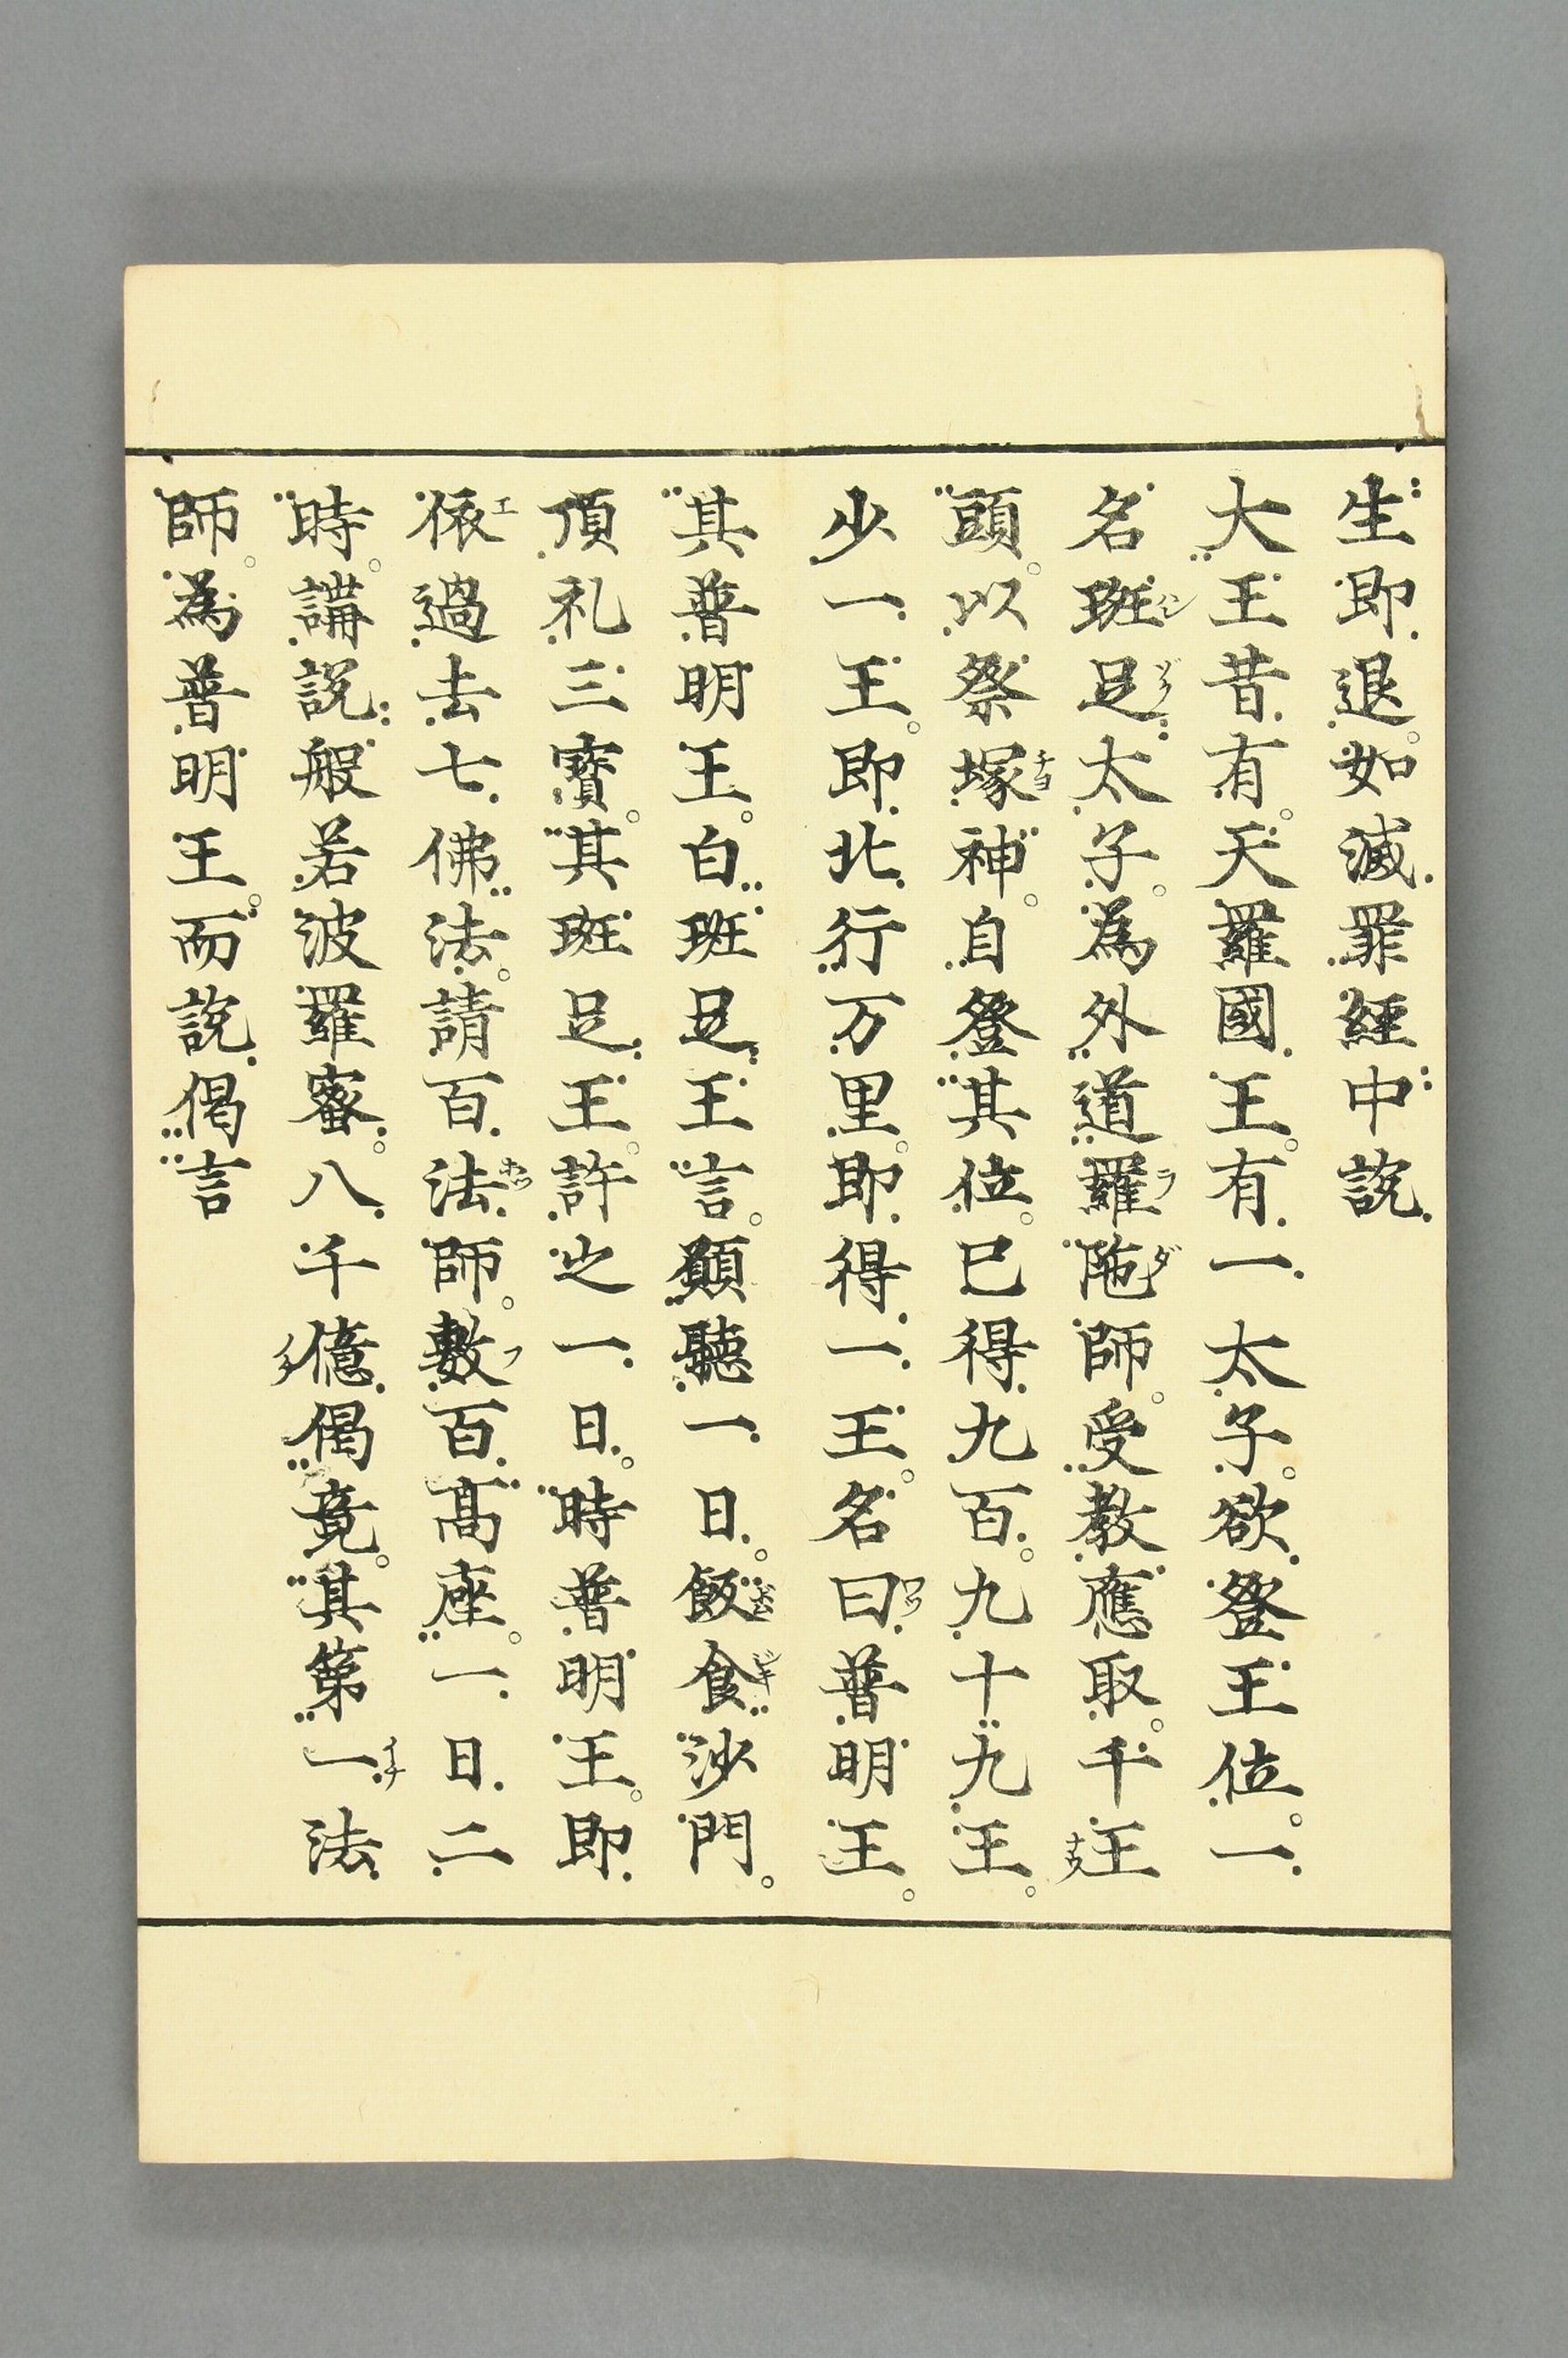 生即退如滅罪經中說
大王昔有天羅國王有一太子欲登王位一
名班足太子為外道羅陁師受教應取千王
頭以祭塚神自登其位已得九百九十九王
少一王即北行万里即得一王名曰普明王
其普明王白班足王言願聽一日飯食沙門
頂礼三寶其班足王許之一日時普明王即
依過去七佛法請百法師敷百髙座一日二
時講說般若波羅蜜八千億偈竟其第一法
師為普明王而說偈言